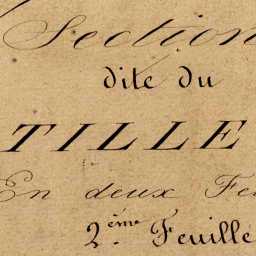 Section
dite du
TILLE
En deux Fe
2.ème Feuille